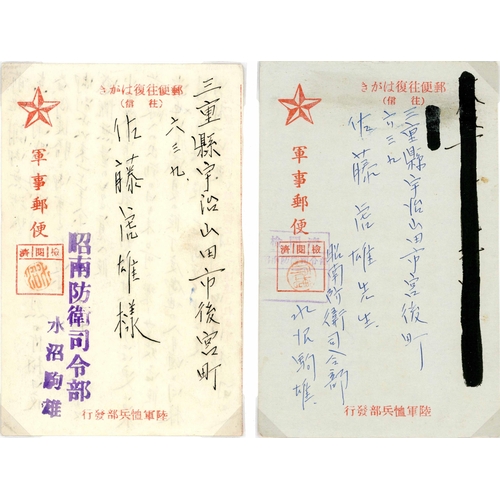 郵便往復はがき
(往信)
三重縣宇治山田市後宮町
六三九
佐藤虎雄様
軍事郵便
檢閲濟
昭南防衛司令部
水沼駒雄
陸軍恤兵部發行
郵便往復はがき
(往信)
三重縣宇治山田市宮後町
六三九
佐藤虎雄先生
軍事郵便
檢閲濟
昭南防衛司令部
水沼駒雄
陸軍恤兵部發行